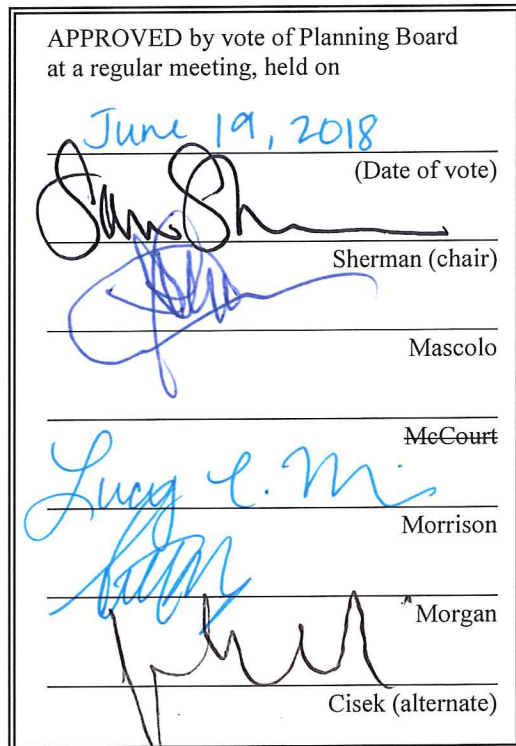 APPROVED by vote of Planning Board
at a regular meeting, held on
June 19, 2018
(Date of vote)
Sherman (chair)
Mascolo
McCourt
Lucy C. M
Morrison
Morgan
Cisek (alternate)